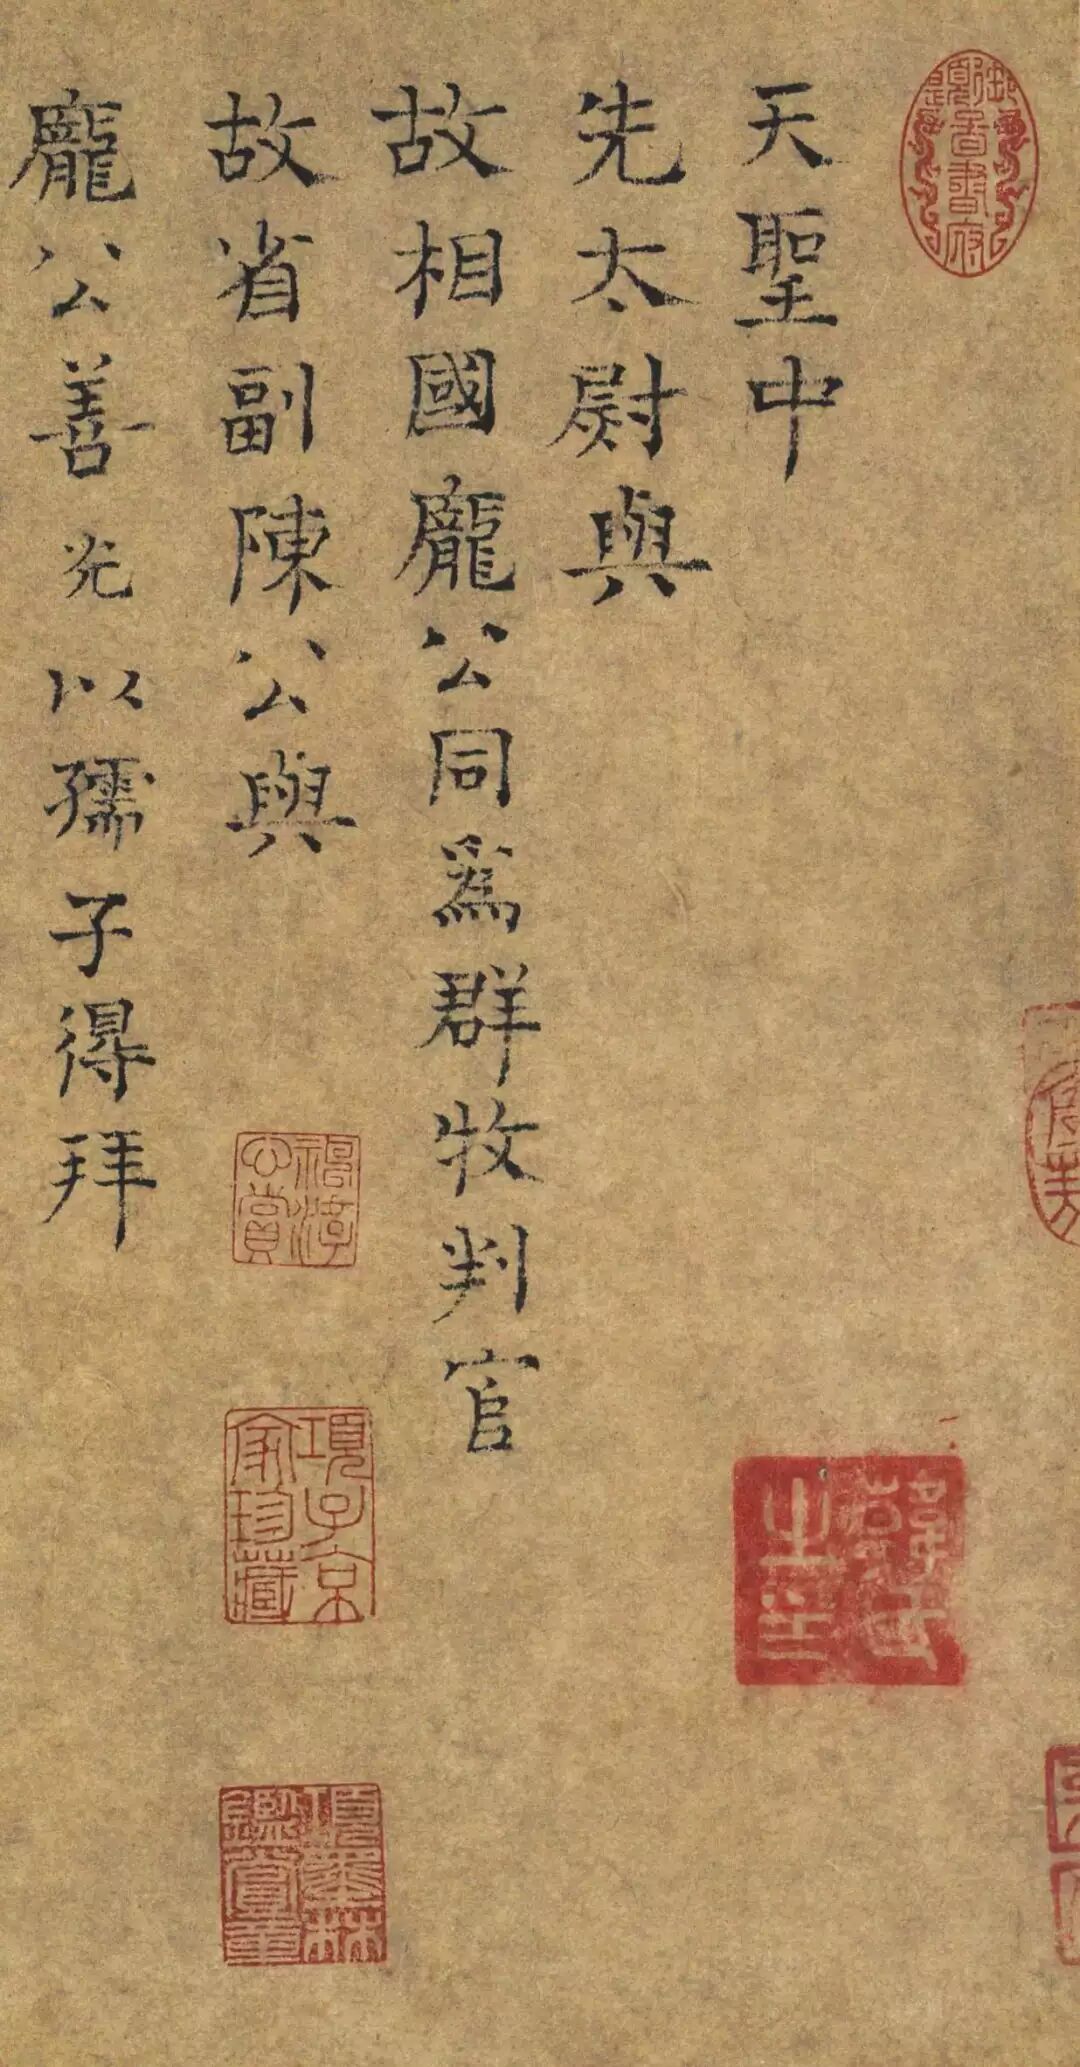 天聖中
先太尉與
故相國龐公同為群牧判官
故省副陳公與
龐公善光以孺子得拜
項子京家珍藏
項墨林鑑賞章